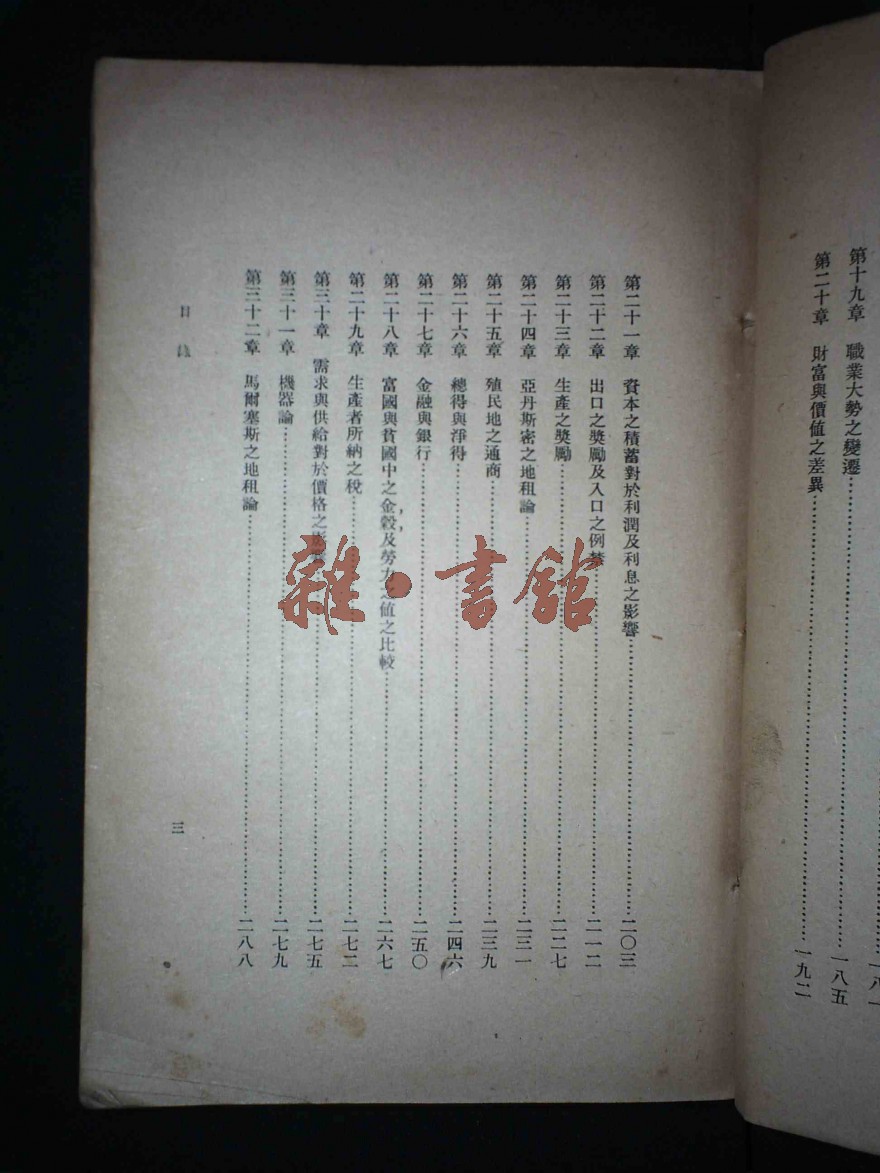 一八一
第十九章 職業大勢之變遷 一八五
第二十章 財富與價值之差異 一九二
第二十一章 資本之積蓄對於利潤及利息之影響 二〇三
第二十二章 出口之獎勵及入口之例禁 二一二
第二十三章 生產之獎勵 二二七
第二十四章 亞丹斯密之地租論 二三一
第二十五章 殖民地之通商 二三九
第二十六章 總得與淨得 二四六
第二十七章 金融與銀行 二五〇
第二十八章 富國與貧國中之金，穀，及勞力之值之比較 二六七
第二十九章 生產者所納之稅 二七二
第三十章 需求與供給對於價格之影響 二七五
第三十一章 機器論 二七九
第三十二章 馬爾塞斯之地租論 二八八
目錄
三
雜·書館